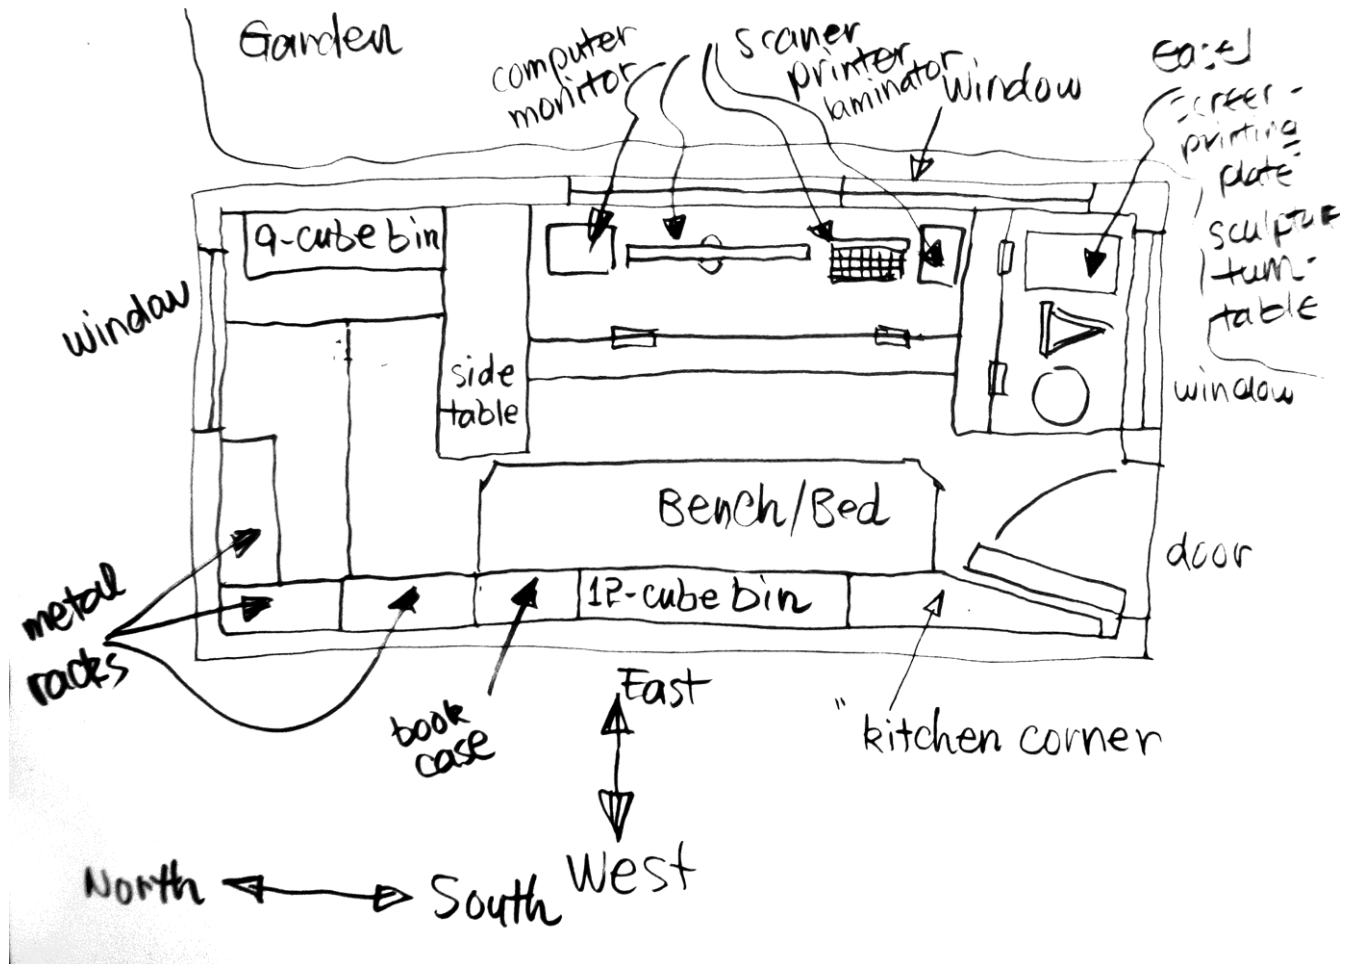 Garden
computer
monitor
scaner
printer
laminator
window
Easel
screen-
printing
plate
sculptur
turn-
table
9-cube bin
window
side
table
window
Bench/Bed
door
12-cube bin
metal
racks
book
case
East
"kitchen corner
West
North
South